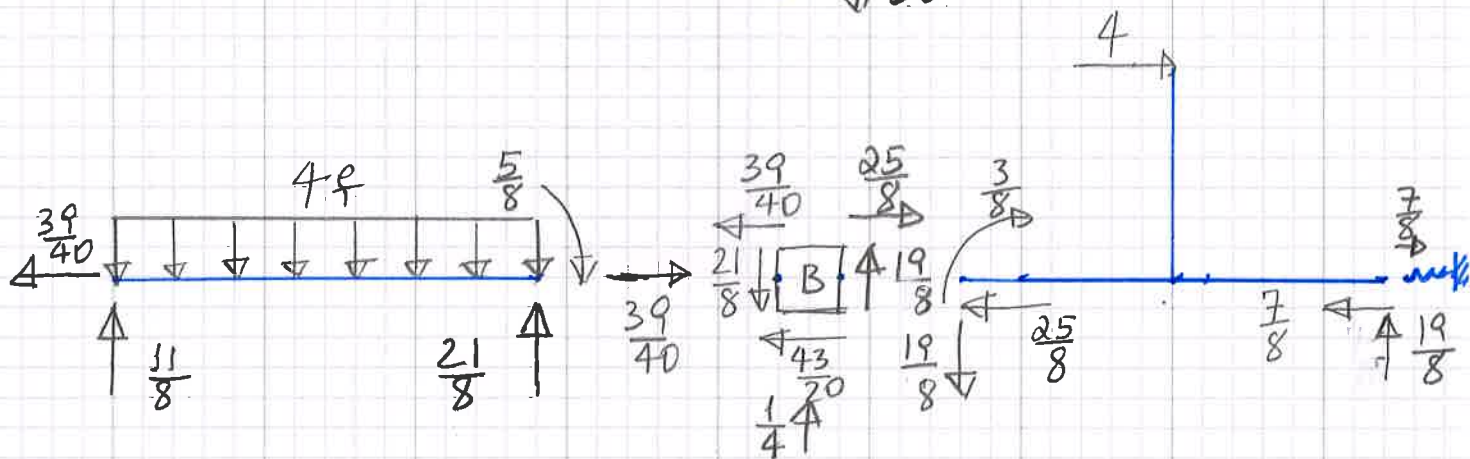 4
39/40
4 P/1
5/8
39/40
25/8
3/8
7/8
21/8
B
19/8
11/8
21/8
39/40
43/20
19/8
25/8
7/8
19/8
1/4